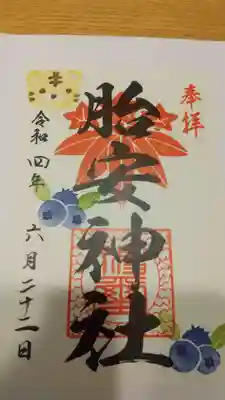 奉拝
胎安神社
令和四年 六月二十二日